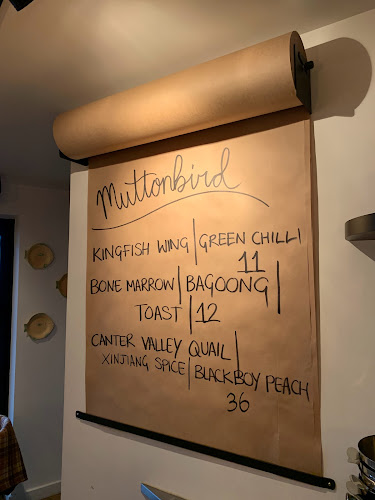 Muttonbird
KINGFISH WING | GREEN CHILLI
11
BONE MARROW | BAGOONG |
TOAST | 12
CANTER VALLEY QUAIL |
XINJIANG SPICE | BLACKBOY PEACH
36